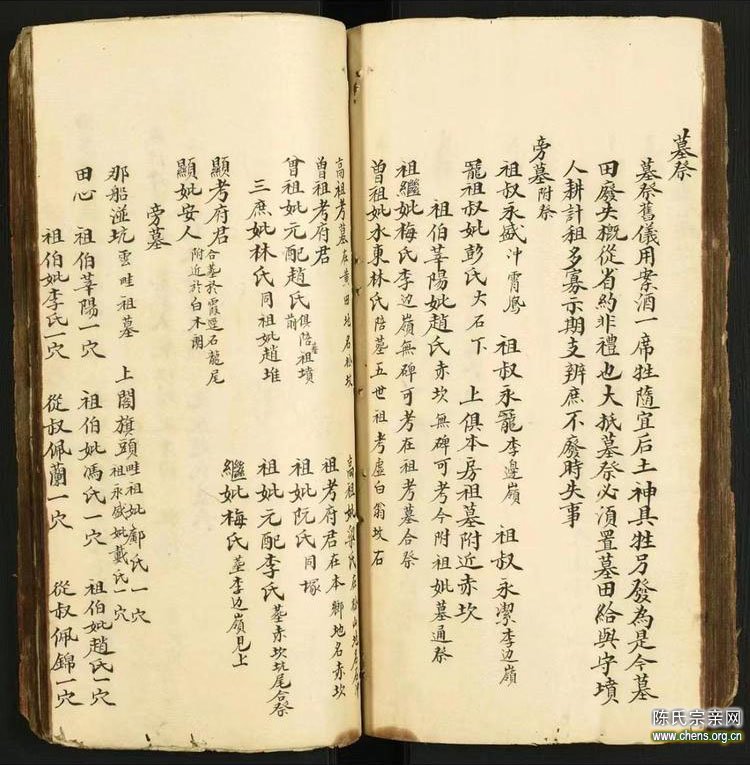 墓祭
墓祭舊儀用案酒一席牲隨宜后土神具牲另發為是今墓
田廢失概從省約非禮也大抵墓祭必須置墓田給與守墳
人耕計租多寡示期支辨庶不廢時失事
旁墓附祭
祖叔永盛冲霄鳳 祖叔永寵李邊嶺 祖叔永潔李边嶺
寵祖叔妣彭氏大石下 上俱本房祖墓附近赤坎
祖伯莘陽妣趙氏赤坎無碑可考今附祖妣墓通祭
祖繼妣梅氏李边嶺無碑可考在祖考墓合祭
曾祖妣水東林氏陪墓五世祖考虛白翁坟右
高祖考墓在黄田地名松坎 高祖妣梁氏在松山地名
曾祖考府君 祖考府君在本鄉地名赤坎
曾祖妣元配趙氏俱陪祖墳前 祖妣阮氏同塚
三庶妣林氏同祖妣趙堆 祖妣元配李氏墓赤坎坑尾合祭
顯考府君合墓於霞邊石龍尾 繼妣梅氏墓李边嶺見上
顯妣安人附近於白木朗
旁墓
那船湴坑雲畦祖墓 上閣旗頭畦祖妣鄺氏一穴 祖永盛妣戴氏一穴
田心 祖伯莘陽一穴 祖伯妣馮氏一穴 祖伯妣趙氏一穴
祖伯妣李氏一穴 從叔佩蘭一穴 從叔佩錦一穴
陈氏宗亲网
www.chens.org.cn